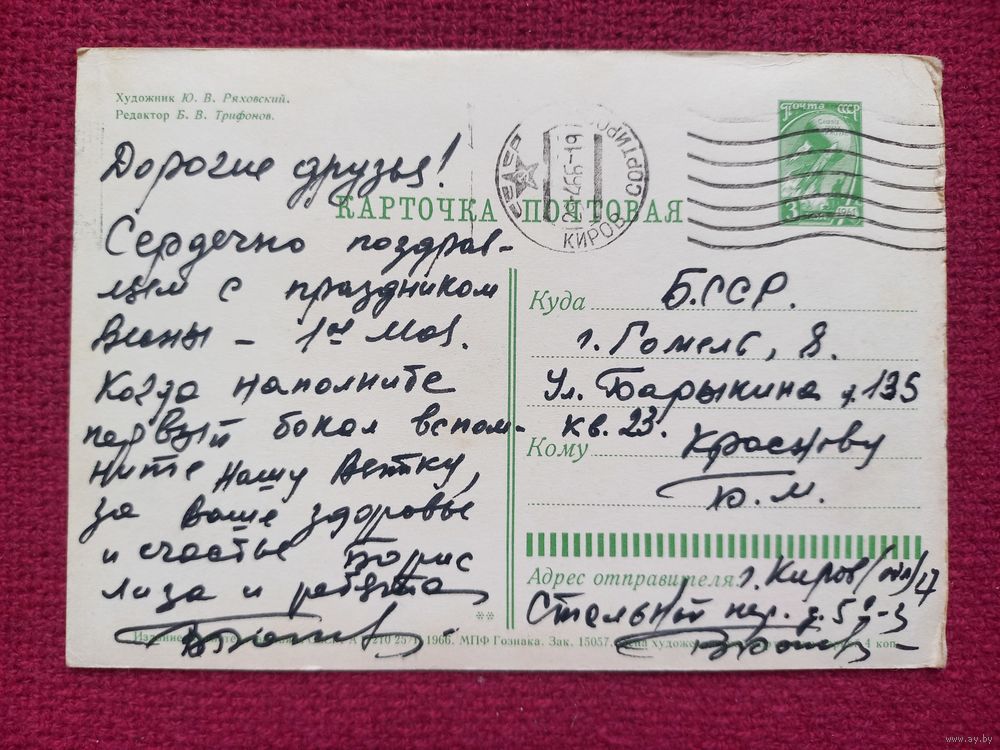 Художник Ю. В. Ряховский.
Редактор Б. В. Трифонов.
КАРТОЧКА ПОЧТОВАЯ
ПОЧТА СССР
КИРОВ СОРТИРО
29 4 66-19
Дорогие друзья!
Сердечно поздрав-
ляем с праздником
Весны - 1ое Мая.
Когда наполните
первый бокал вспом-
ните нашу Вятку,
за ваше здоровье
и счастье Борис
Лиза и ребята
Куда Б.ССР.
г. Гомель, 8.
Ул. Барыкина д 135
кв. 23.
Кому Краснову
Ю. М.
Адрес отправителя: г. Киров (обл) 17
Стальной пер. д. 5
Издание
1966. МПФ Гознака. Зак. 15057.
4 коп
www.ay.by